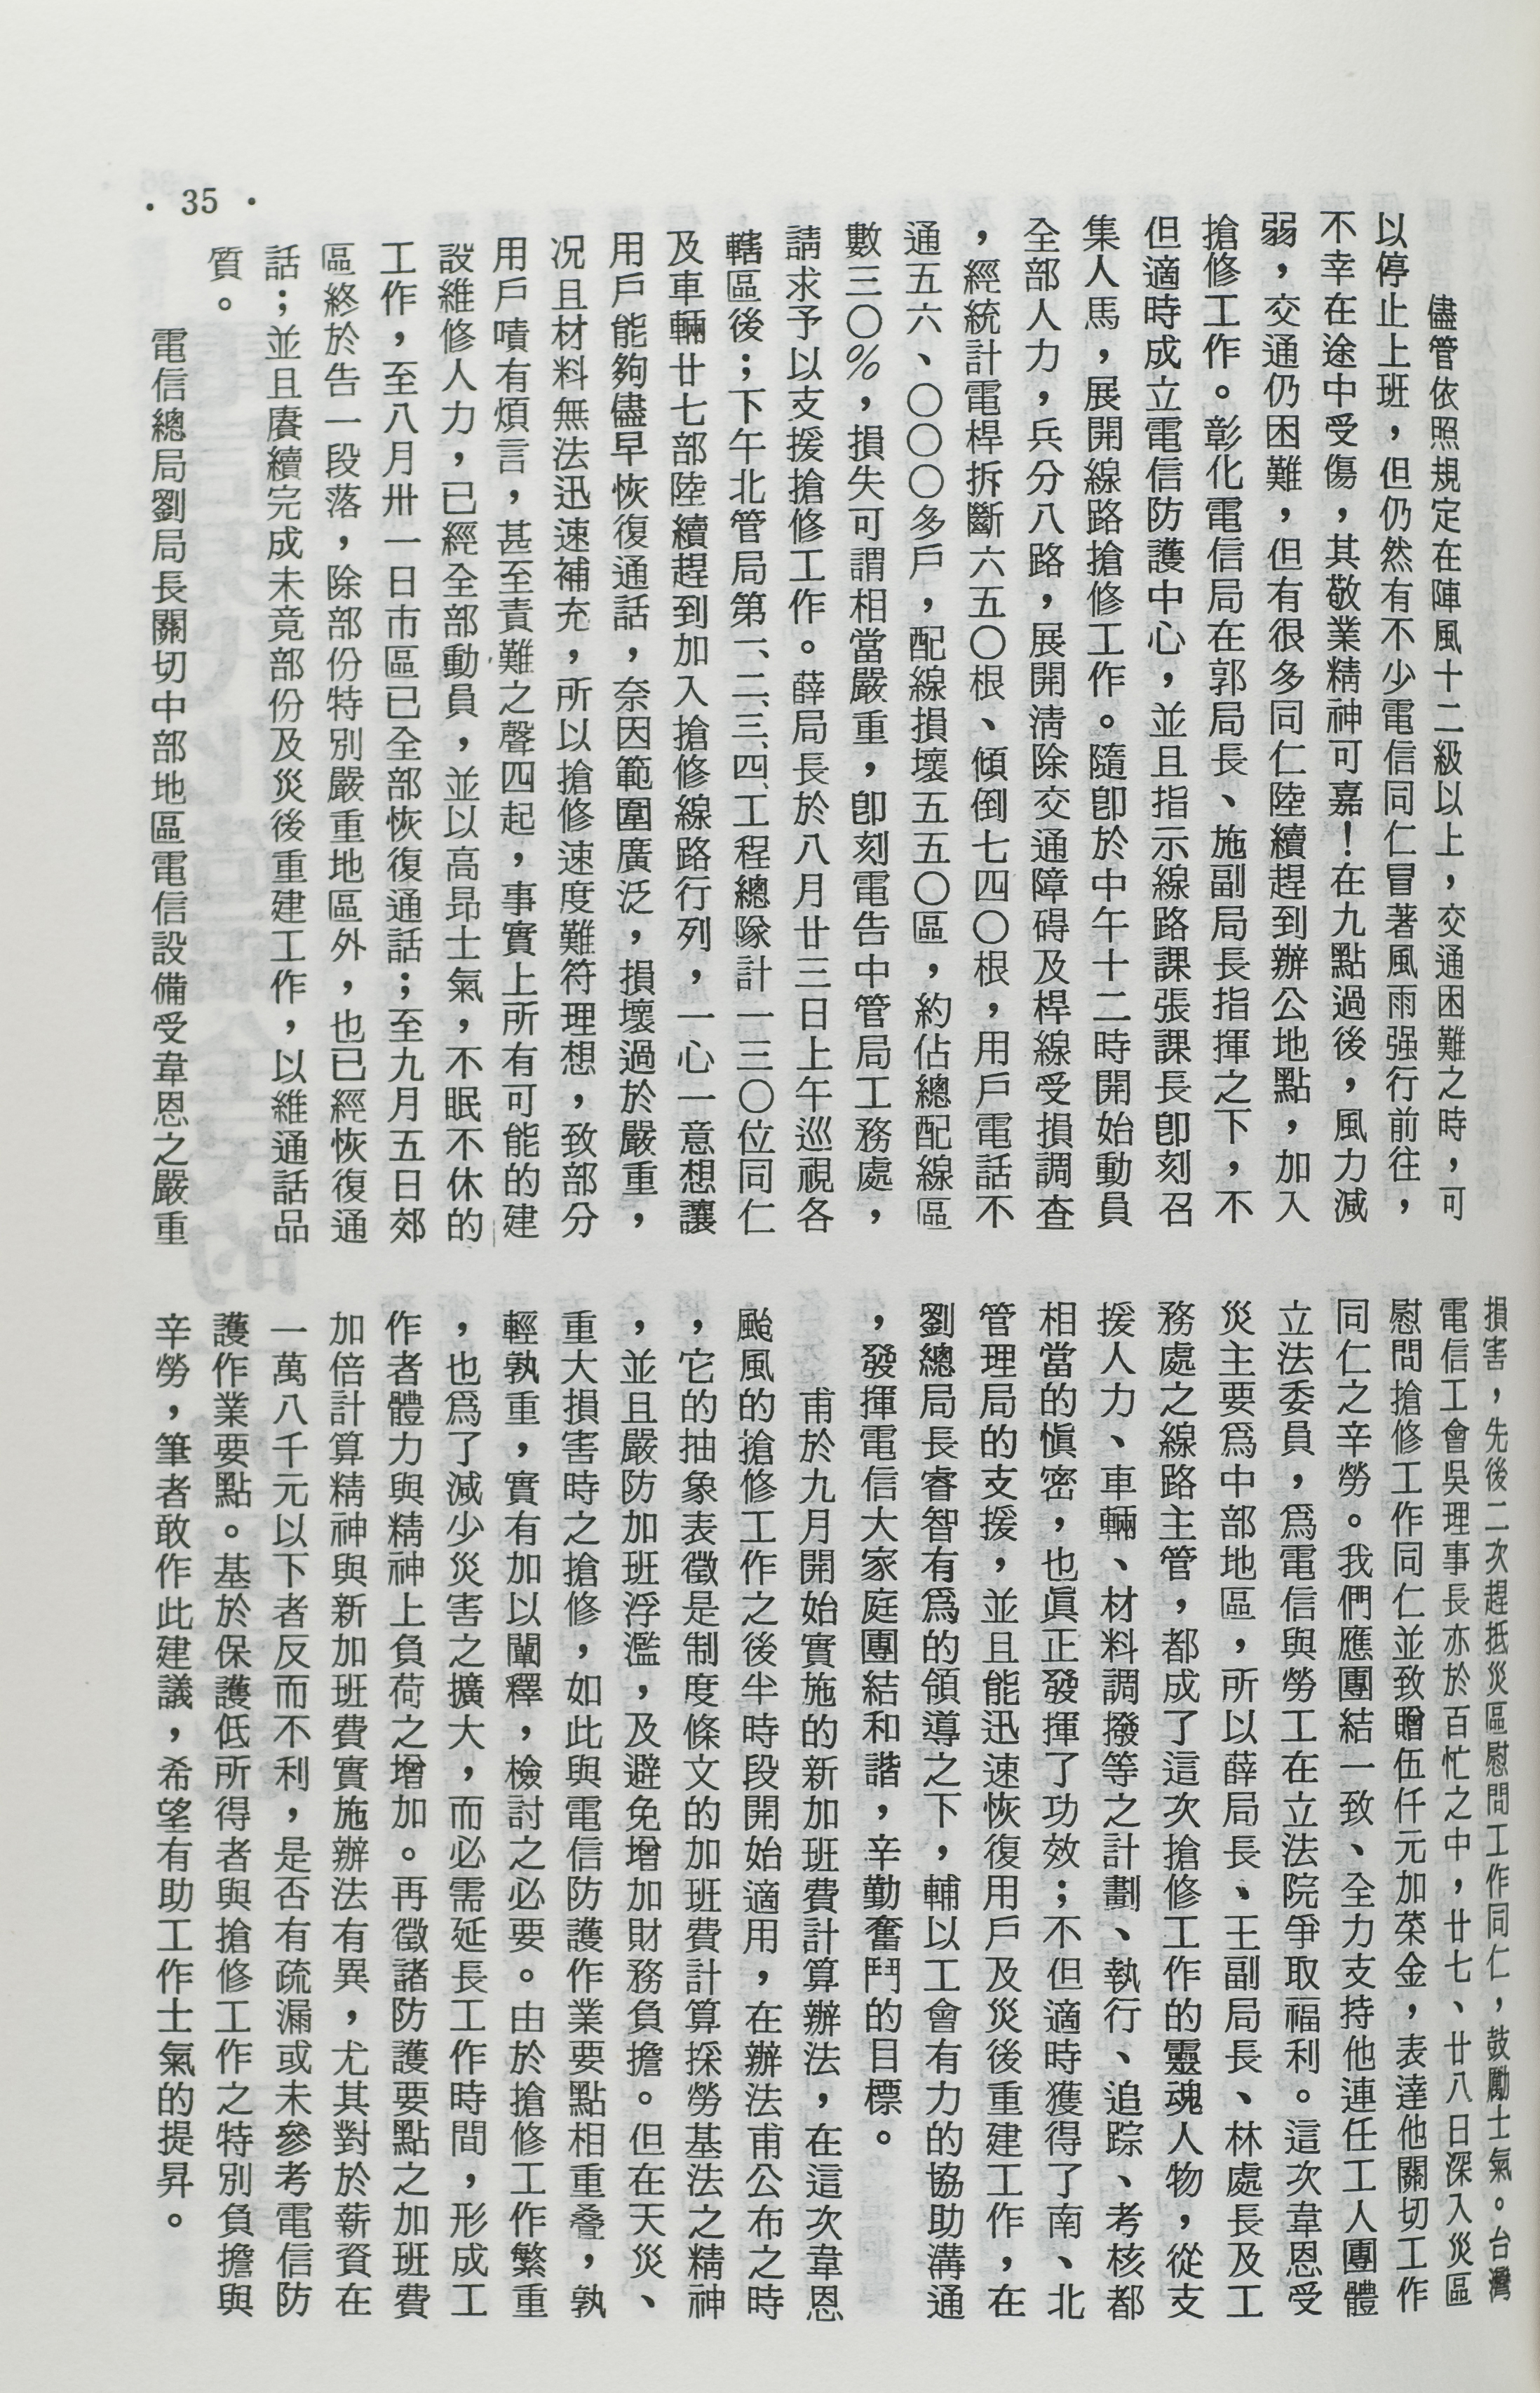 儘管依照規定在陣風十二級以上，交通困難之時，可
以停止上班，但仍然有不少電信同仁冒著風雨强行前往，
不幸在途中受傷，其敬業精神可嘉！在九點過後，風力減
弱，交通仍困難，但有很多同仁陸續趕到辦公地點，加入
搶修工作。彰化電信局在郭局長、施副局長指揮之下，不
但適時成立電信防護中心，並且指示線路課張課長卽刻召
集人馬，展開線路搶修工作。隨卽於中午十二時開始動員
全部人力，兵分八路，展開清除交通障碍及桿線受損調查
，經統計電桿拆斷六五〇根、傾倒七四〇根，用戶電話不
通五六、〇〇〇多戶，配線損壞五五〇區，約佔總配線區
數三〇％，損失可謂相當嚴重，卽刻電告中管局工務處，
請求予以支援搶修工作。薛局長於八月廿三日上午巡視各
轄區後；下午北管局第一、二、三、四、工程總隊計一三〇位同仁
及車輛廿七部陸續趕到加入搶修線路行列，一心一意想讓
用戶能夠儘早恢復通話，奈因範圍廣泛，損壞過於嚴重，
况且材料無法迅速補充，所以搶修速度難符理想，致部分
用戶嘖有煩言，甚至責難之聲四起，事實上所有可能的建
設維修人力，已經全部動員，並以高昂士氣，不眠不休的
工作，至八月卅一日市區已全部恢復通話；至九月五日郊
區終於告一段落，除部份特別嚴重地區外，也已經恢復通
話；並且賡續完成未竟部份及災後重建工作，以維通話品
質。
電信總局劉局長關切中部地區電信設備受韋恩之嚴重
損害，先後二次趕抵災區慰問工作同仁，鼓勵士氣。台灣
電信工會吳理事長亦於百忙之中，廿七、廿八日深入災區
慰問搶修工作同仁並致贈伍仟元加菜金，表達他關切工作
同仁之辛勞。我們應團結一致、全力支持他連任工人團體
立法委員，爲電信與勞工在立法院爭取福利。這次韋恩受
災主要爲中部地區，所以薛局長、王副局長、林處長及工
務處之線路主管，都成了這次搶修工作的靈魂人物，從支
援人力、車輛、材料調撥等之計劃、執行、追踪、考核都
相當的愼密，也眞正發揮了功效；不但適時獲得了南、北
管理局的支援，並且能迅速恢復用戶及災後重建工作，在
劉總局長睿智有爲的領導之下，輔以工會有力的協助溝通
，發揮電信大家庭團結和諧，辛勤奮鬥的目標。
甫於九月開始實施的新加班費計算辦法，在這次韋恩
颱風的搶修工作之後半時段開始適用，在辦法甫公布之時
，它的抽象表徵是制度條文的加班費計算採勞基法之精神
，並且嚴防加班浮濫，及避免增加財務負擔。但在天災、
重大損害時之搶修，如此與電信防護作業要點相重叠，孰
輕孰重，實有加以闡釋，檢討之必要。由於搶修工作繁重
，也爲了減少災害之擴大，而必需延長工作時間，形成工
作者體力與精神上負荷之增加。再徵諸防護要點之加班費
加倍計算精神與新加班費實施辦法有異，尤其對於薪資在
一萬八千元以下者反而不利，是否有疏漏或未參考電信防
護作業要點。基於保護低所得者與搶修工作之特別負擔與
辛勞，筆者敢作此建議，希望有助工作士氣的提昇。
• 35 •